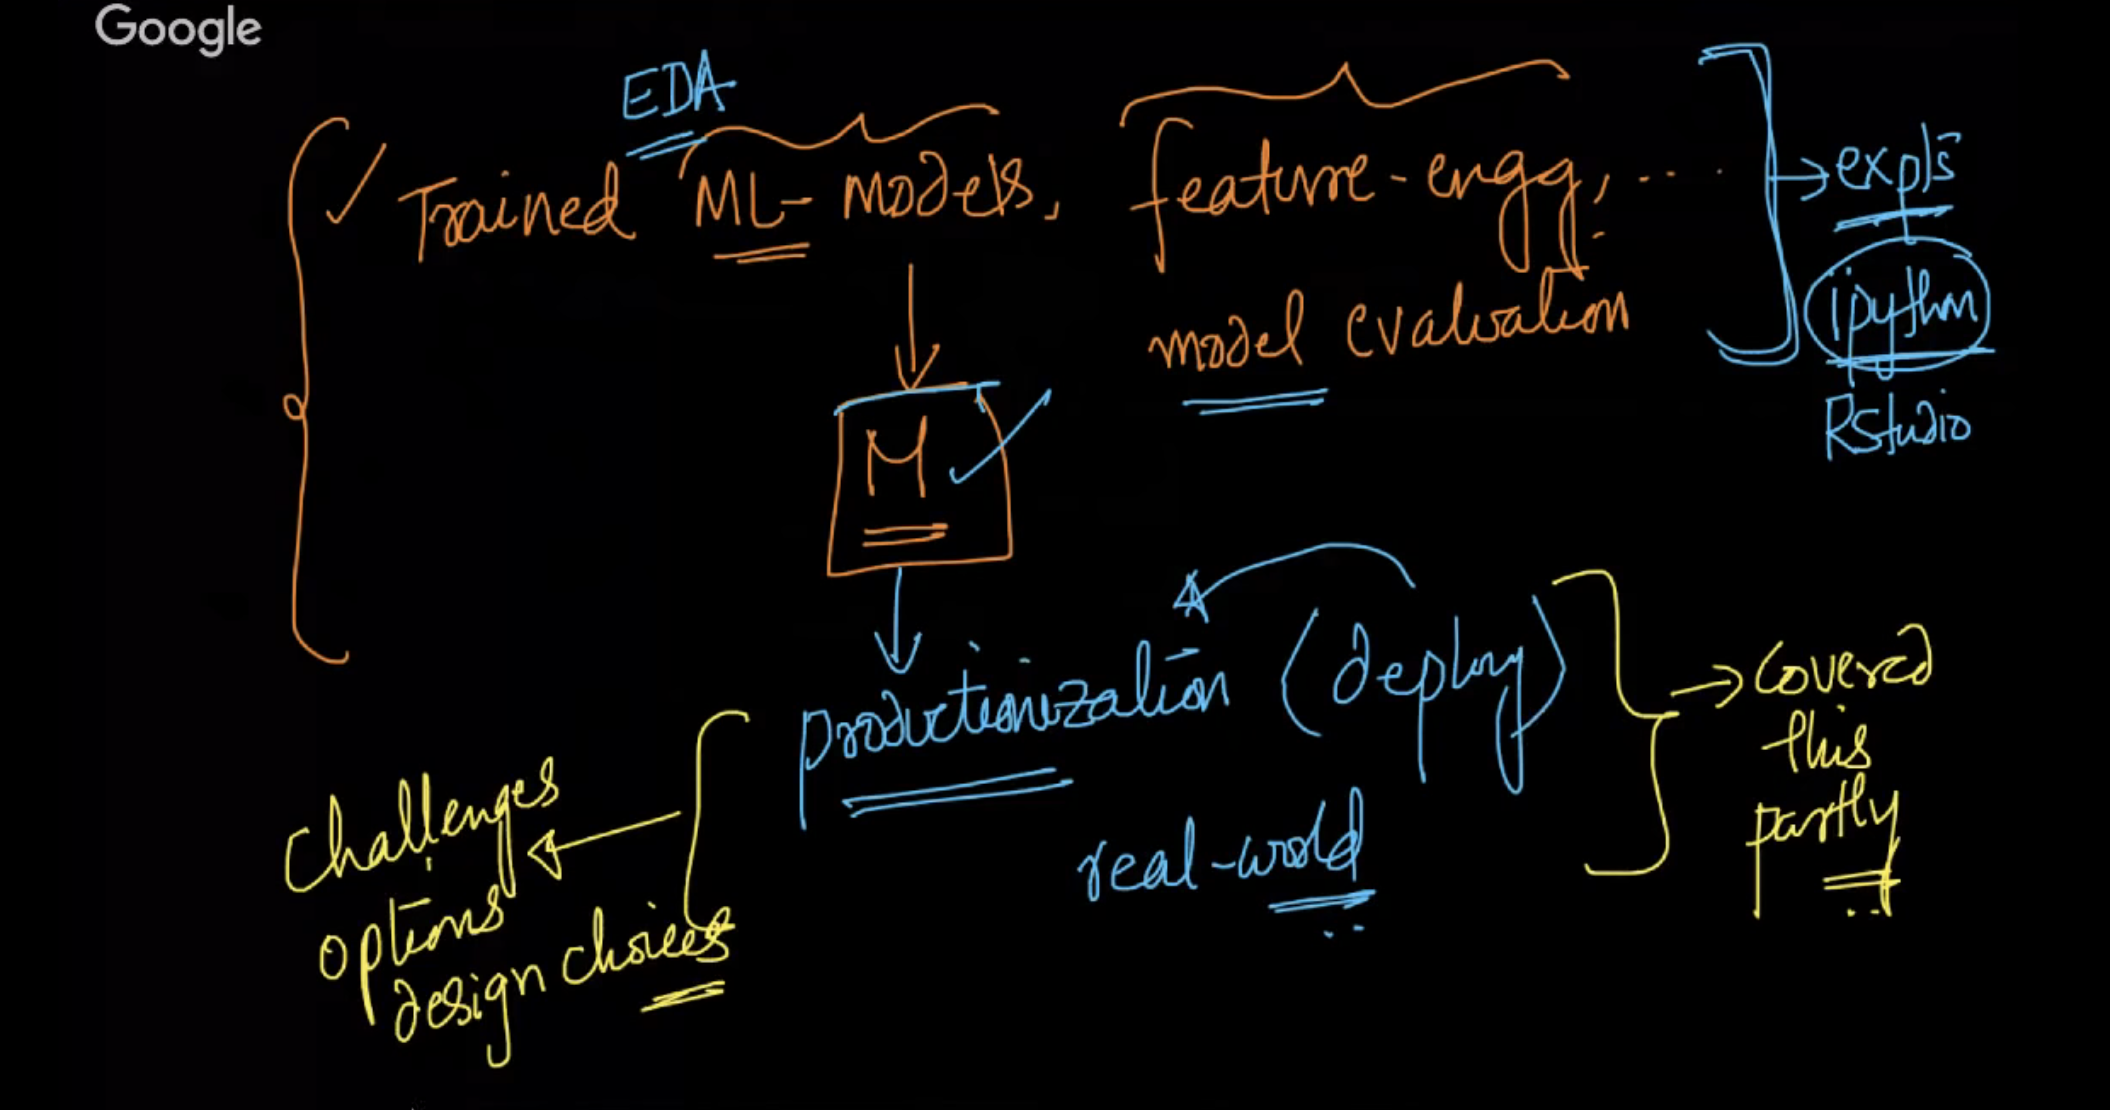 Google
EDA
Trained ML-models, feature-engg, ....
expls
model evaluation
ipython
Rstudio
M
productionization (deploy)
real-world
covered
this
partly
challenges
options
design choices